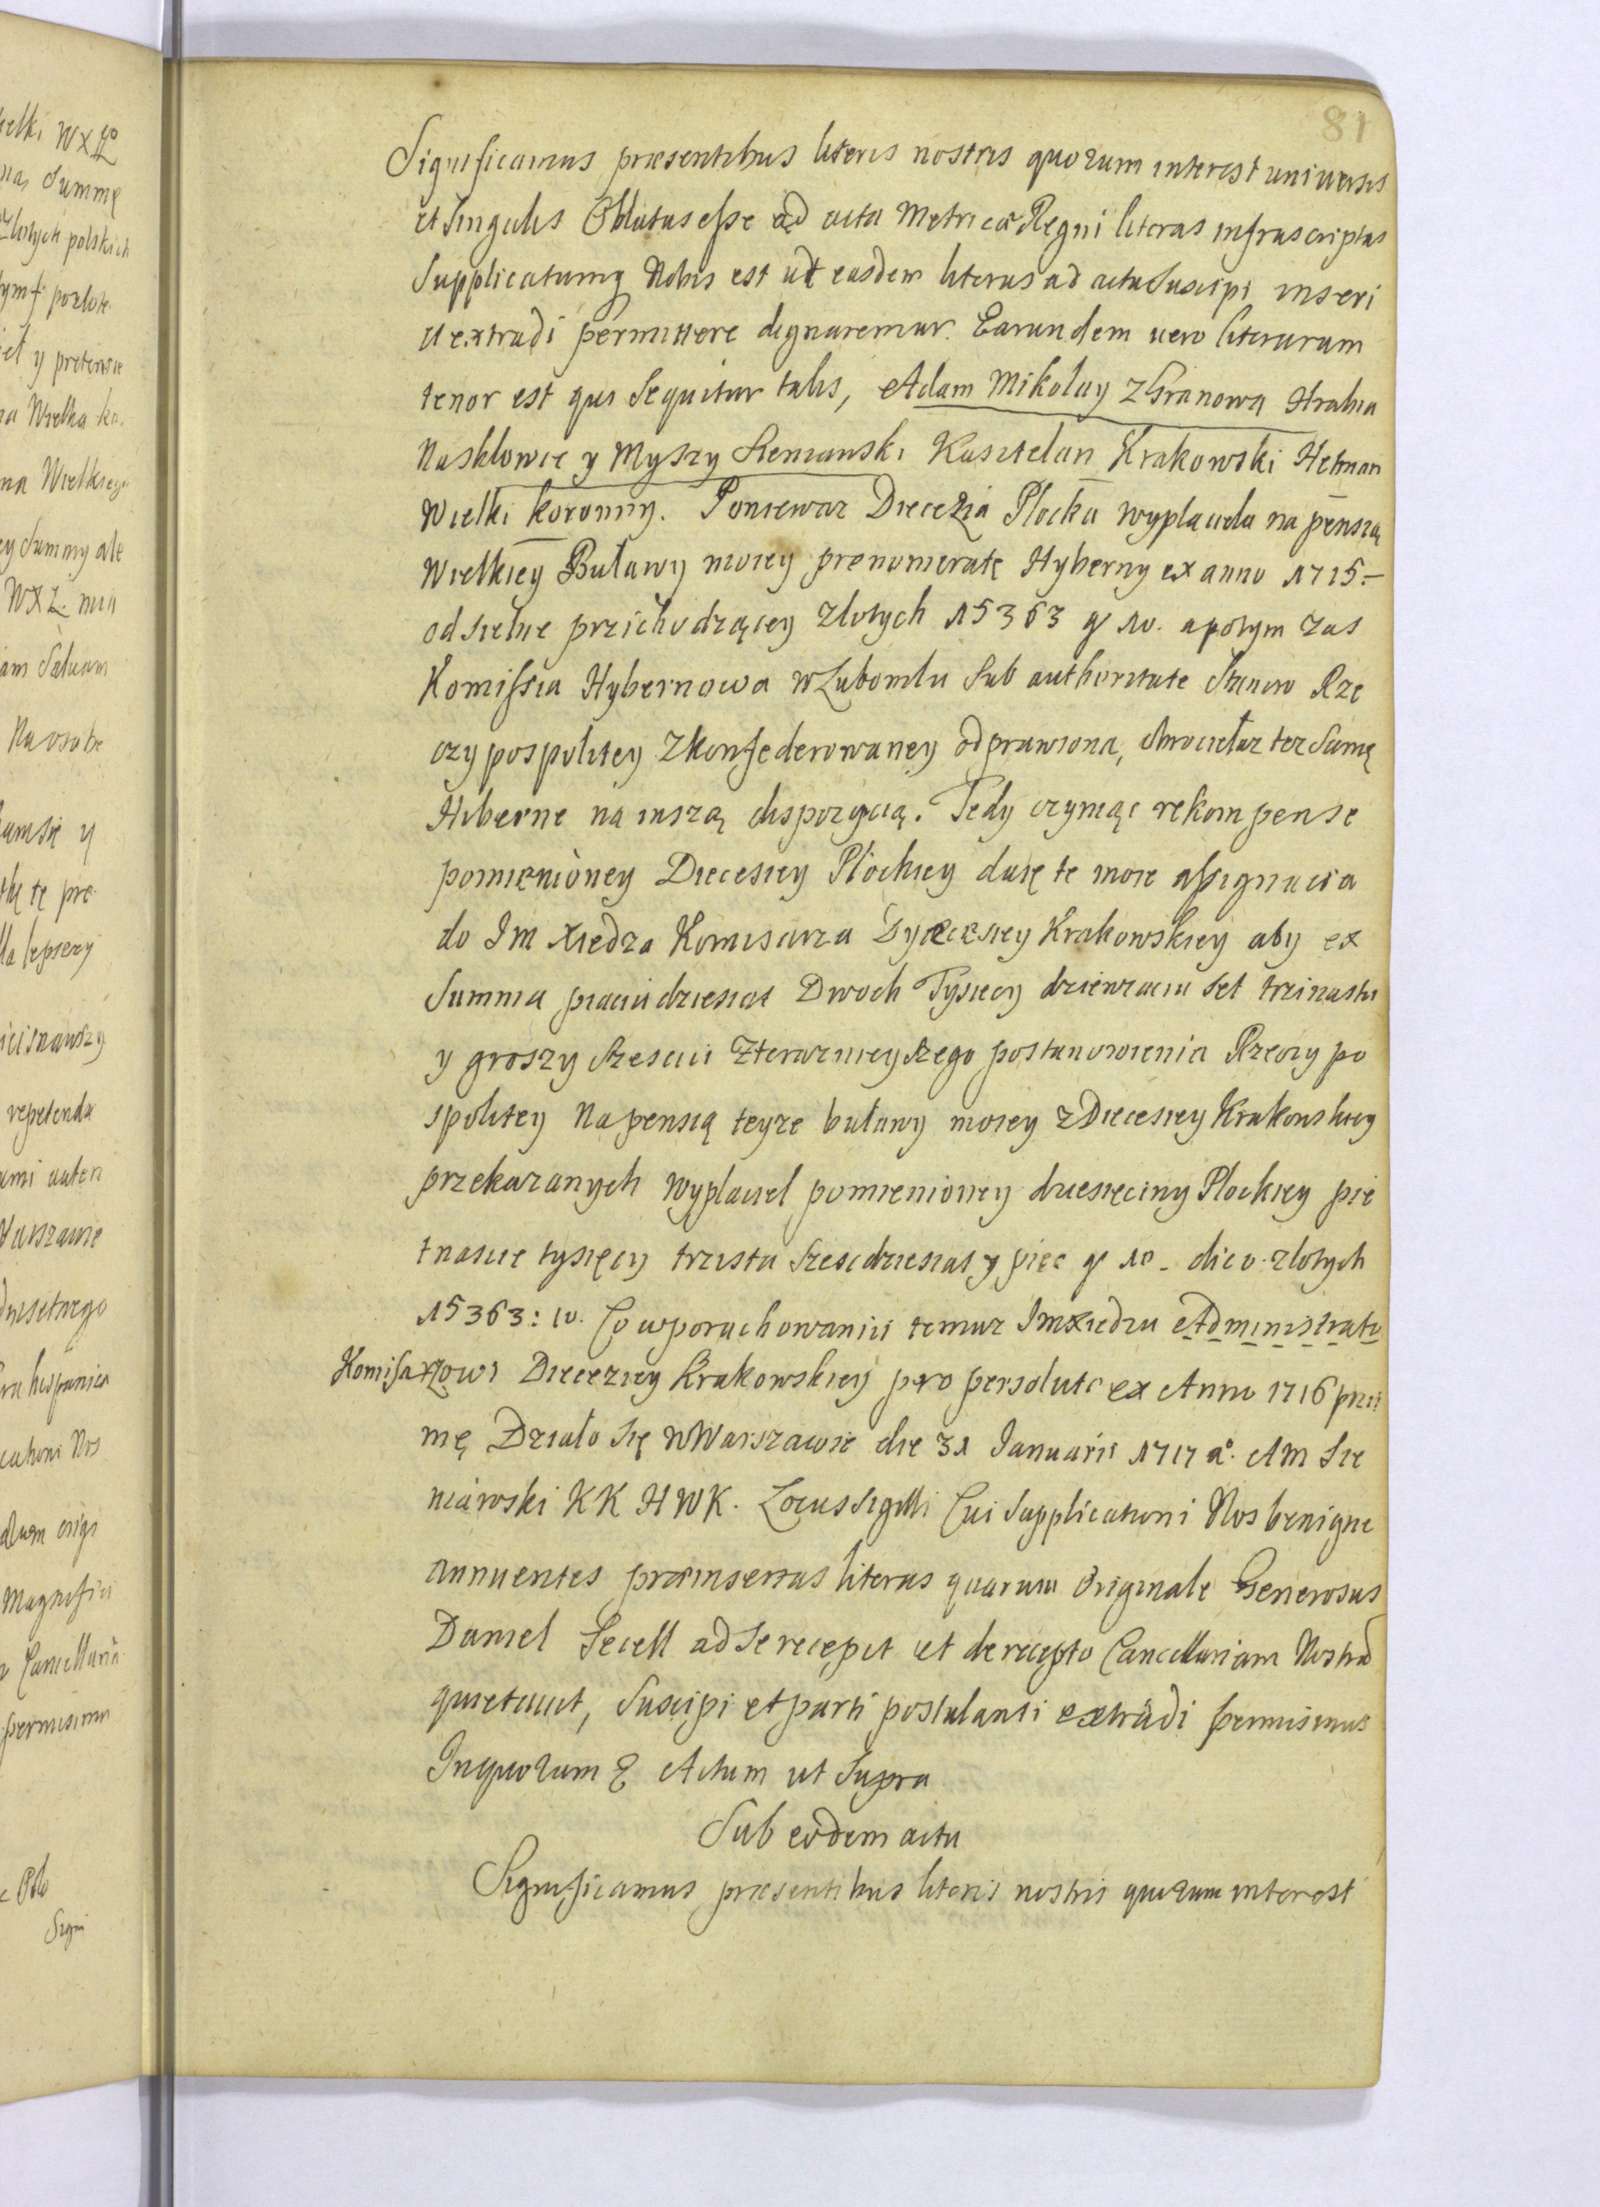 81
Significamus præsentibus literis nostris quorum interest universis
et singulis Oblatas esse ad acta Metricæ Regni literas infrascriptas
Supplicatumq Nobis est ut easdem literas ad acta suscipi inseri
et extradi permittere dignaremur. Earundem vero literarum
tenor est qui sequitur talis, Adam Mikolay z Granowa Hrabia
Na Sklowie y Myszy Sieniawski Kasztelan Krakowski Hetman
Wielki koronny. Poniewaz Diecezia Plocka wyplacila na pensią
Wielkiey Buławy moiey prenomeratę Hyberny ex anno 1715 -
od siebie przichodzącey zlotych 15363 gr 10. apotym zas
Komissia Hybernowa w Lubomlu sub authoritate Stanow Rze
czypospolitey zkonfederowaney odprawiona, obrociła tez samę
Hiberne na inszą dispozycią. Tedy czyniąc rekompense
pomienioney Diecesiey Płockiey daię te moie assignacia
do Im Xiedza Komisarza Dyecesiey Krakowskiey aby ex
Summa piaciudziesiat Dwoch Tysiecy dziewiaciu set trzinastu
y groszy szesciu z teraznieyszego postanowienia Rzeczy po
spolitey Na pensią teyze buławy moiey z Diecesiey Krakowskiey
przekazanych wyplaciel pomienioney dziesięciny Plockiey pie
tnascie tysięcy trzista szescdziesiat y pięc gr 10 - dico zlotych
15363: 10. Co w porachowaniu temuz Imxiedzu Administrato
Komisarzowi Dieceziey Krakowskiey pro persoluto ex Anno 1716 prii
mę Działo się w Warszawie die 31 Januarii 1717 aº. AM Sie
niawski KK HWK. Locus sigilli Cui supplicationi Nos benigne
annuentes præinsertas literas quarum Originale Generosus
Daniel Secell ad se recepit et de recepto Cancellariam Nostrā
quietavit, suscipi et parti postulanti extradi permisimus
In quorum & Actum ut supra
Sub eodem actu
Significamus præsentibus literis nostris quorum interest